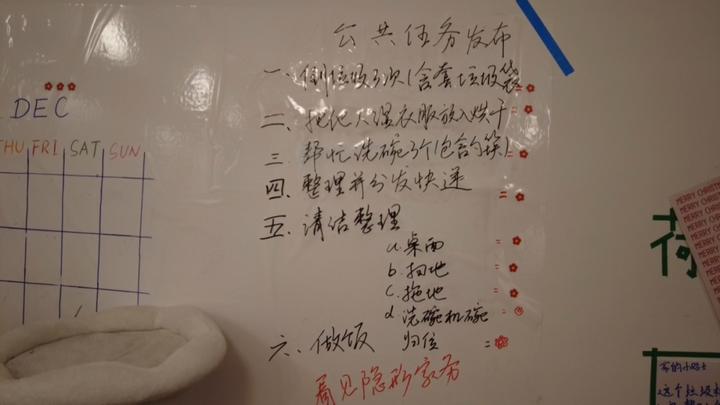 公共任务发布
一、倒垃圾3次(含套垃圾袋)=
二、把他人湿衣服放入烘干=
三、帮忙洗碗3个(包含勺筷)=
四、整理并分发快递=
五、清洁整理
a.桌面=
b.扫地=
c.拖地=
d.洗碗机碗=
归位
六、做饭=
看见隐形家务
DEC
THU FRI SAT SUN
荷
MERRY CHRIST
MERRY CHRIST
MERRY CHRIST
MERRY CHRIST
这个垃圾